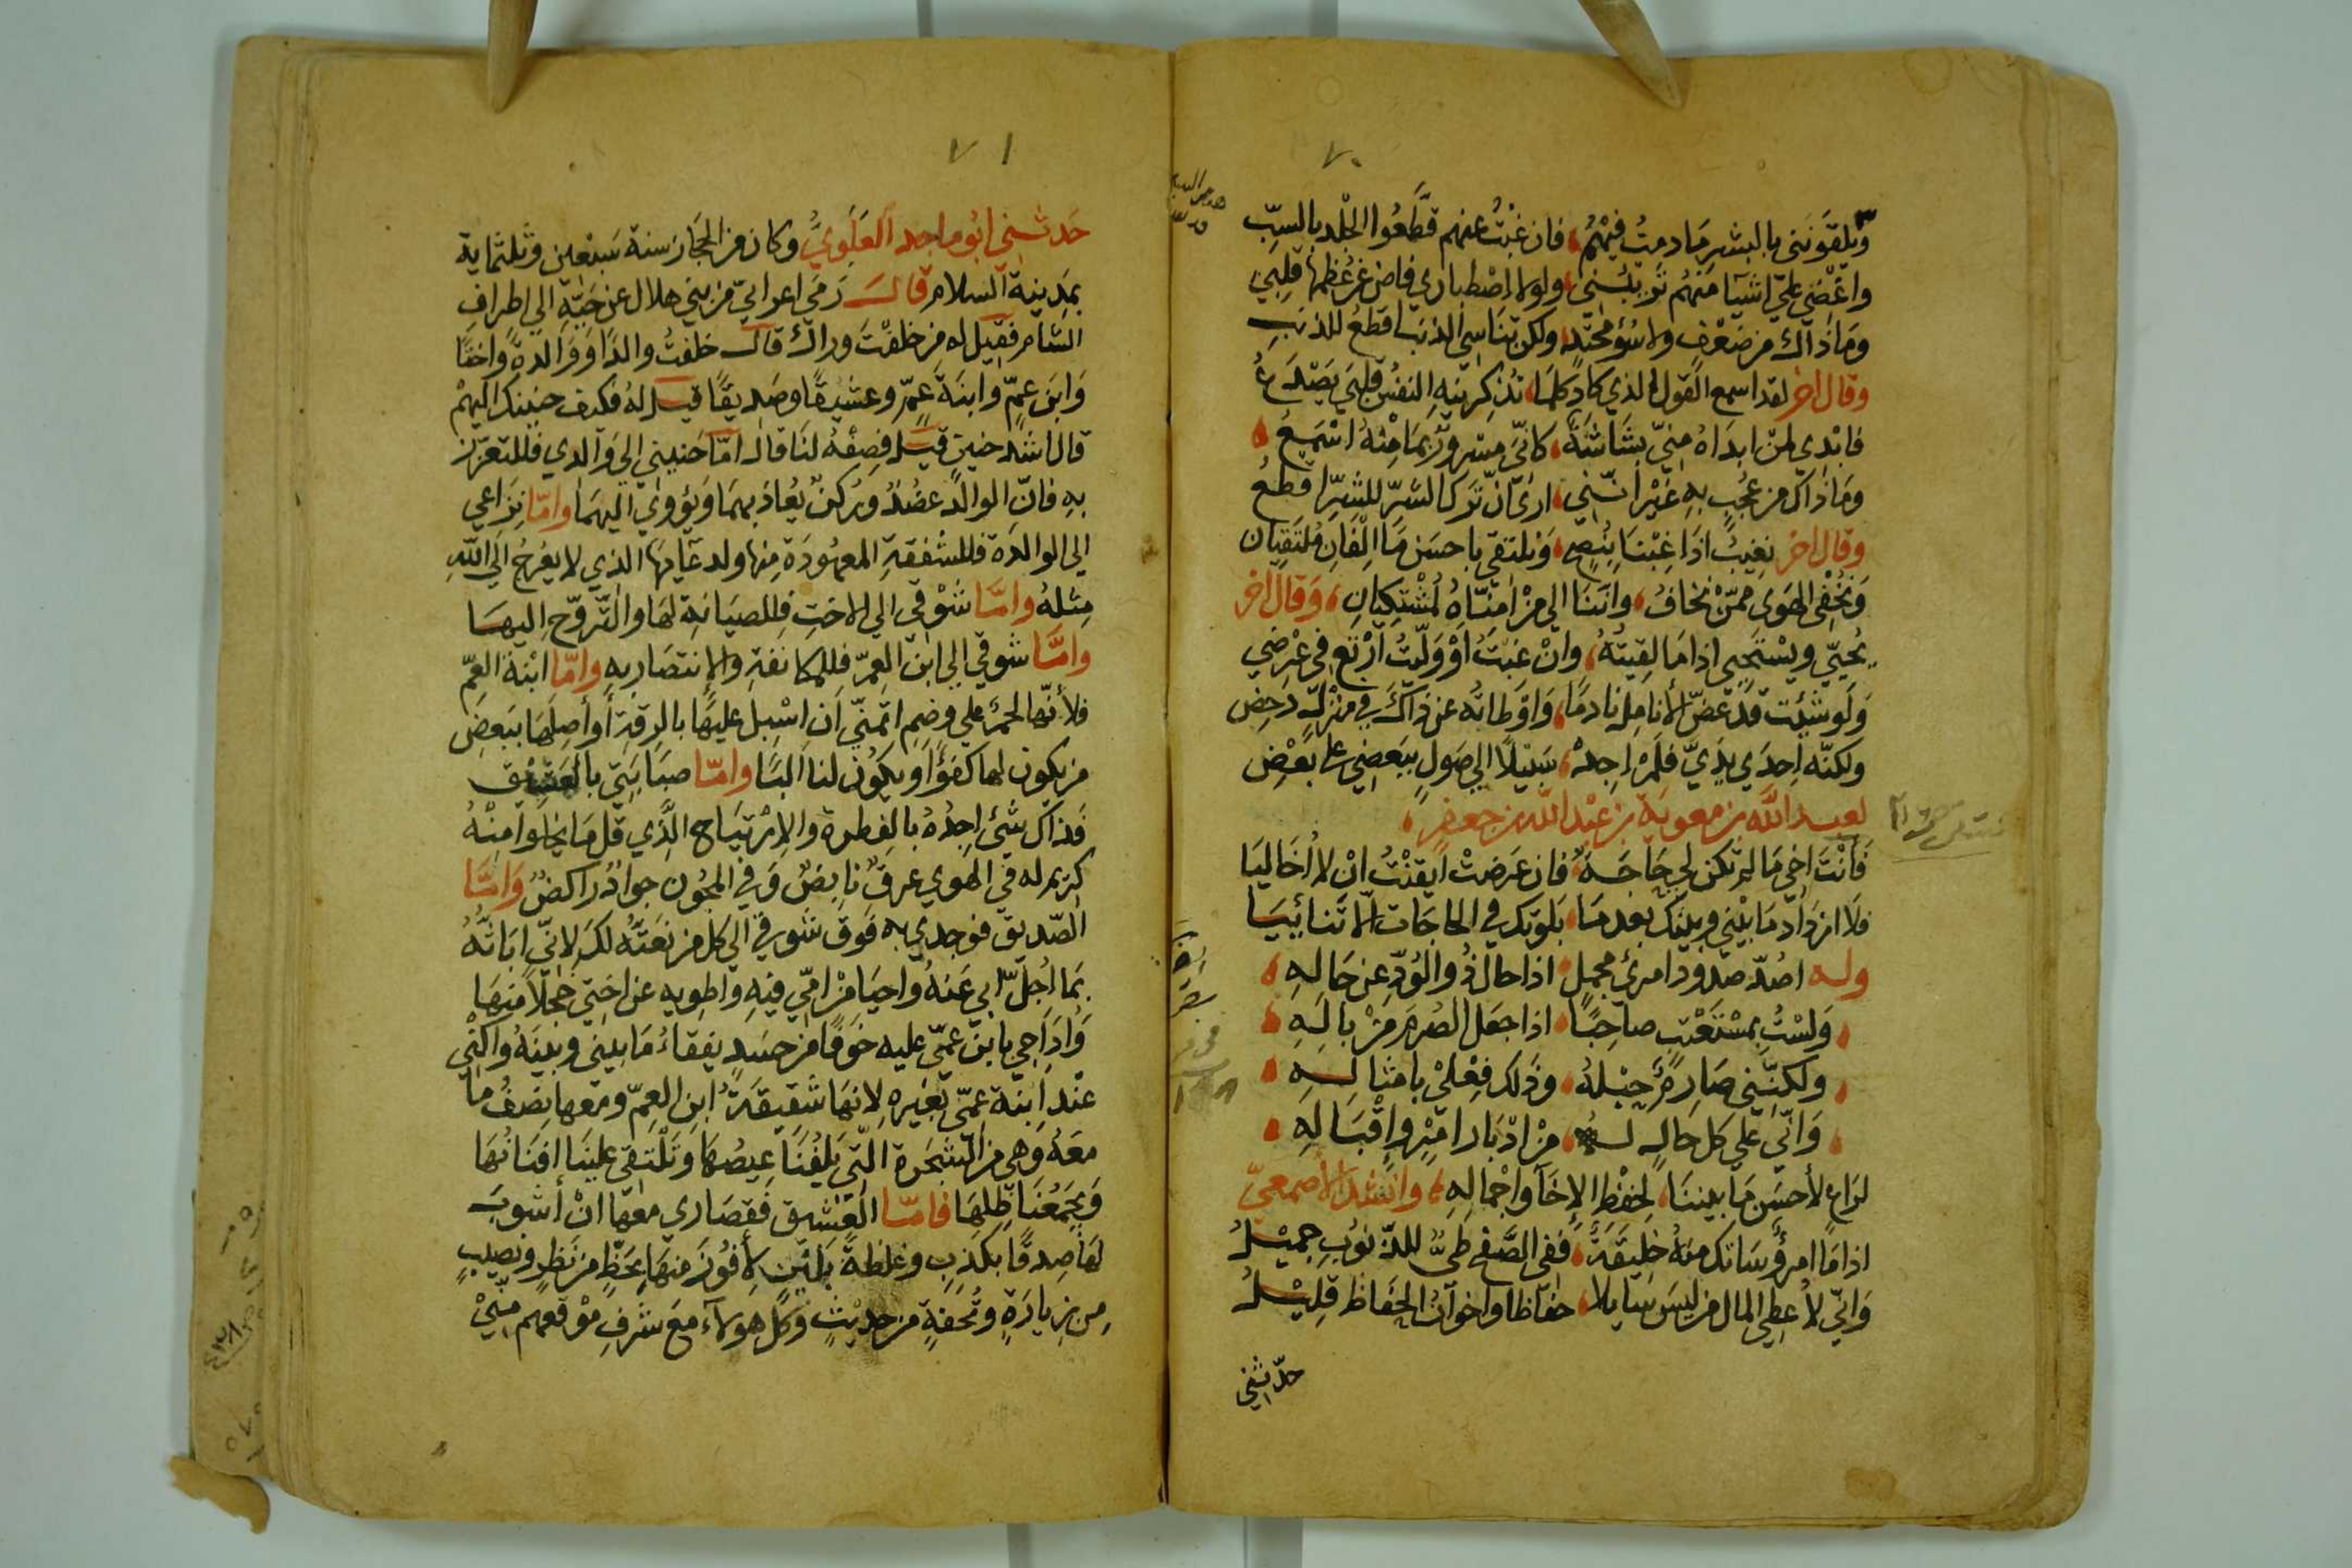 ٧٠
ويلقونني بالبشر ما دمتُ فيهُم، فان غبتُ عنهم قطَّعُوا الجلد بالسبّ
واغضي علي اشيآ منهُم تُريبُني، ولولا اصْطباري فاض غرعُظمها قلبي
وما ذاك من ضعْفٍ ولا سُؤ محتدٍ، ولكن تناسي الذنب اقطعُ للذنب
وقال اخر لقد اسمع القول الذي كاد كلما، تذكرنيه النفس قلبي يصدعُ
فابدي لمن ابداهُ منّي بشاشةً، كانّي مسرورٌ بما منهُ اسْمعُ
وما ذاك من عُجبٍ به غير انّني، اري انّ ترك الشرّ للشرّ اقطعُ
وقال اخر نغيبُ اذا غبنا بنُصح، ونلتقي باحسن ما الفان ملتقيان
ونُخفي الهوي ممنْ نخافُ، واننا الي منْ امنّاهُ لمشتكيانِ، وقال اخر
يُحيّي ويسْتحيي اذا ما لقيتهُ، وانْ غبتُ أوْ ولّيتُ ارْتع في عرْضي
ولو شئت قد عضّ الأنامل نادمًا، واوْطاته عن ذاك في منزلٍ دحض
ولكنّه احدي يديّ فلم اجدْ، سبيلًا الي صولٍ ببعضي علي بعْضِ
لعبد الله بن معوية بن عبد الله بن جعفر،
فأنْتَ اخي ما لم تكن لي حاجةٌ، فان عرضتْ ايقنْتُ انْ لا أخاليا
فلا ازداد ما بيْني وبينك بعدما، بلوتك في الحاجات الّا تنائيا
وله اصُدّ صدود امرئ مجملٍ، اذا حال ذُو الوُدّ عن حاله
ولسْتُ بمسْتعْتبٍ صاحبًا، اذا جعل الصُرم منْ باله
ولكنّني صارمٌ حبْلهُ، وذلك فعْليْ بامثاله
وانّي علي كل حالٍ له، منْ ادْبار امْرٍ واقْباله
لراعٍ لأحسن ما بيننا، لحفْظ الإخآ واجْماله، وانشد الأصمعيّ
اذا ما امرؤٌ ساتك منهُ خليقةٌ، ففي الصّفح طيٌّ للذّنوب جميْلُ
وانّي لأُعطي المال من ليس سايلا، حفاظا واخوانُ الحفاظ قليْلُ
حدّثني
٧١
حدثني ابُو ماجد العلويُّ وكان من الحجاز سنة سبعين وثلثماية
بمدينة السلام قال رمي اعرابيّ من بني هلال عن حيّه الي اطراف
الشام فقيل له من خلفْتَ وراك قال خلفتُ والدًا ووالدةً واختًا
وابن عمّ وابنة عمّ وعشيقًا وصديقًا قيل لهُ فكيف حنينك اليهمْ
قال اشد حنين قيل فصفهُ لنا قال امّا حنيني الي والدي فللتعزّز
به فانّ الوالد عضُدٌ وركنٌ يُعاذ بهما ويؤوي اليهما وامّا نزاعي
الي الوالدة فللشفقة المعهودة منها ولدعآيها الذي لا يعرُجُ الي الله
مثلهُ وامّا شوْقي الي الاختِ فللصيانة لها والتّروّح اليها
وامّا شوقي الي ابن العمّ فللمكانفة والإنتصار به وامّا ابْنة العمّ
فلأنّها لحمٌ علي وضمٍ اتمنّي ان اسْبل عليها بالرقة أو أصلها ببعض
من يكون لها كفؤًا ويكون لنا البًا وامّا صبابتي بالعشيق
فذاك شئ اجدُهُ بالفطرة والإرتياح الّذي قل ما يخلوا منْهُ
كريم له في الهوي عرقٌ نابضٌ وفي المجون جوادٌ راكضٌ وامّا
الصّديق فوجدي به فوق شوقي الي كل من نعتّهُ لك لانّي اباثّهُ
بما اُجلّ ابي عنهُ واحيا منْ امّي فيه واطويه عن اختي خجلًا منها
واداجي بابن عمّي عليه خوفًا من حسدٍ يفقاءُ ما بيني وبينه واكْني
عند ابنة عمّي بغيره لانها شقيقةُ ابن العمّ ومعها نصفُ ما
معهُ وهي من الشجرة الّتي يلفُنا عيصُها وتلْتقي علينا افنانُها
ويجمعُنا ظلها فامّا العشيق فقصاري معها انْ اُشوب
لها صدقًا بكذب وغلظةً بلين لأفوز منها بحظٍّ من نظرٍ ونصيبٍ
من زيارةٍ وتُحفةٍ من حديثٍ وكلّ هولآء مع شرف موْقعهم منّيْ